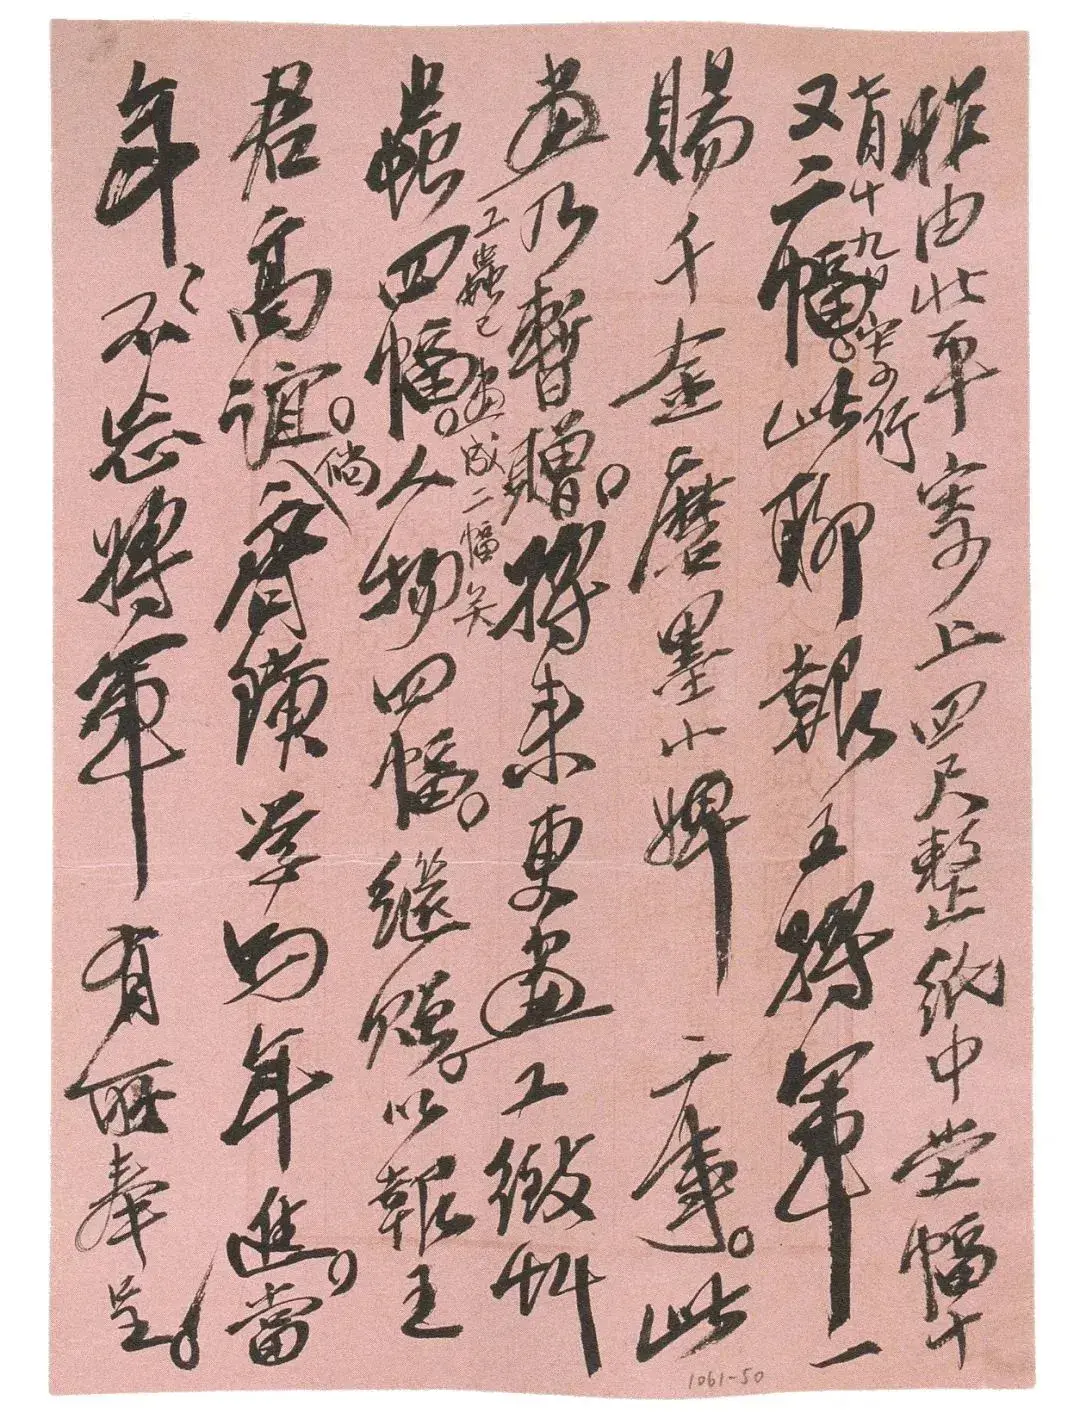 昨由北平寄上四尺整紙中堂幅十
七月十九日寄行
又二幅。此聊報王將軍一
賜千金磨墨小婢一事。此
畫乃暫贈。將來更畫工緻艸
工蟲已畫成二幅矣
蟲四幅。人物四幅。繼贈。以報王
君高誼。倘齊璜學與年進。當
年〻不忘將軍有所奉呈。
1061-50